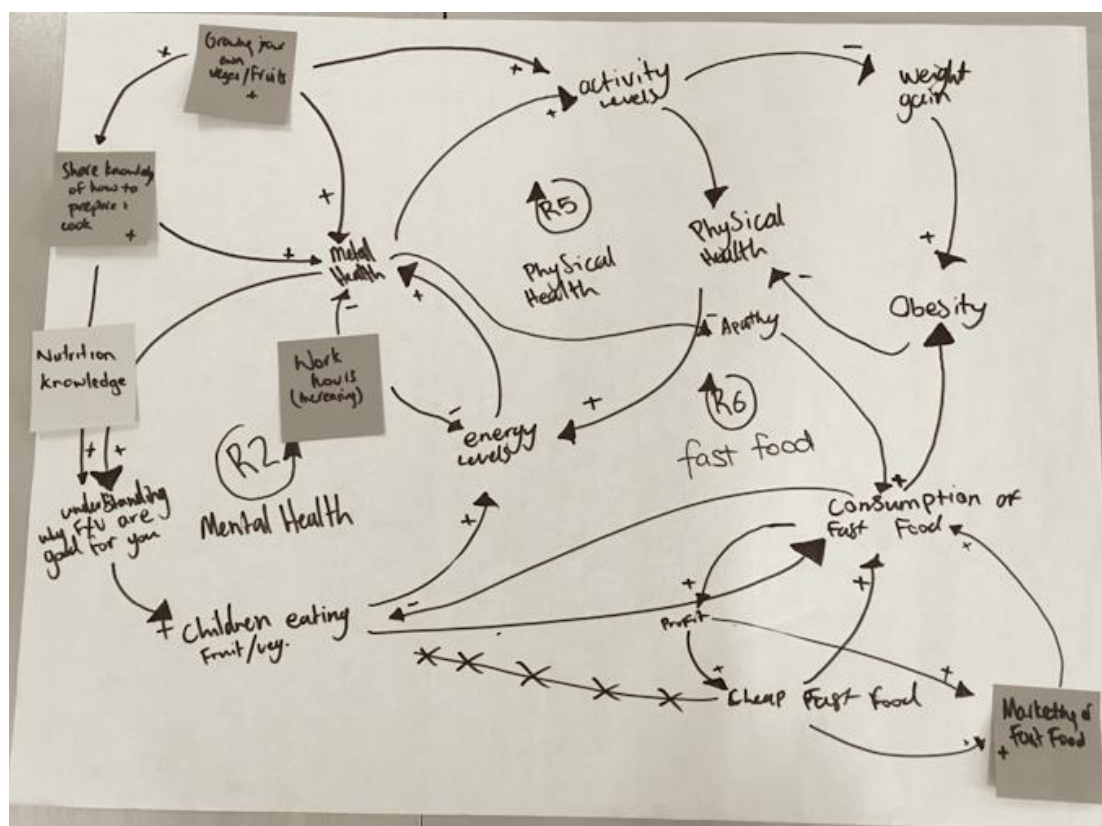 Growing your
own
veges/fruits
+
+
+
+
activity
levels
+
-
weight
gain
Share knowledge
of how to
prepare &
cook
+
+
Metal
Health
-
+
R5
Physical
Health
+
Physical
Health
+
Obesity
-
- Apathy
Nutrition
knowledge
Work
(increasing)
-
+
energy
levels
R6
fast food
R2
Mental Health
+
+
understanding
why F+V are
good for you
+
Consumption of
Fast Food
+
+
-
+
Children eating
Fruit/veg.
+
+
Profit
+
+
Cheap Fast Food
+
+
Marketing of
Fast Food
+